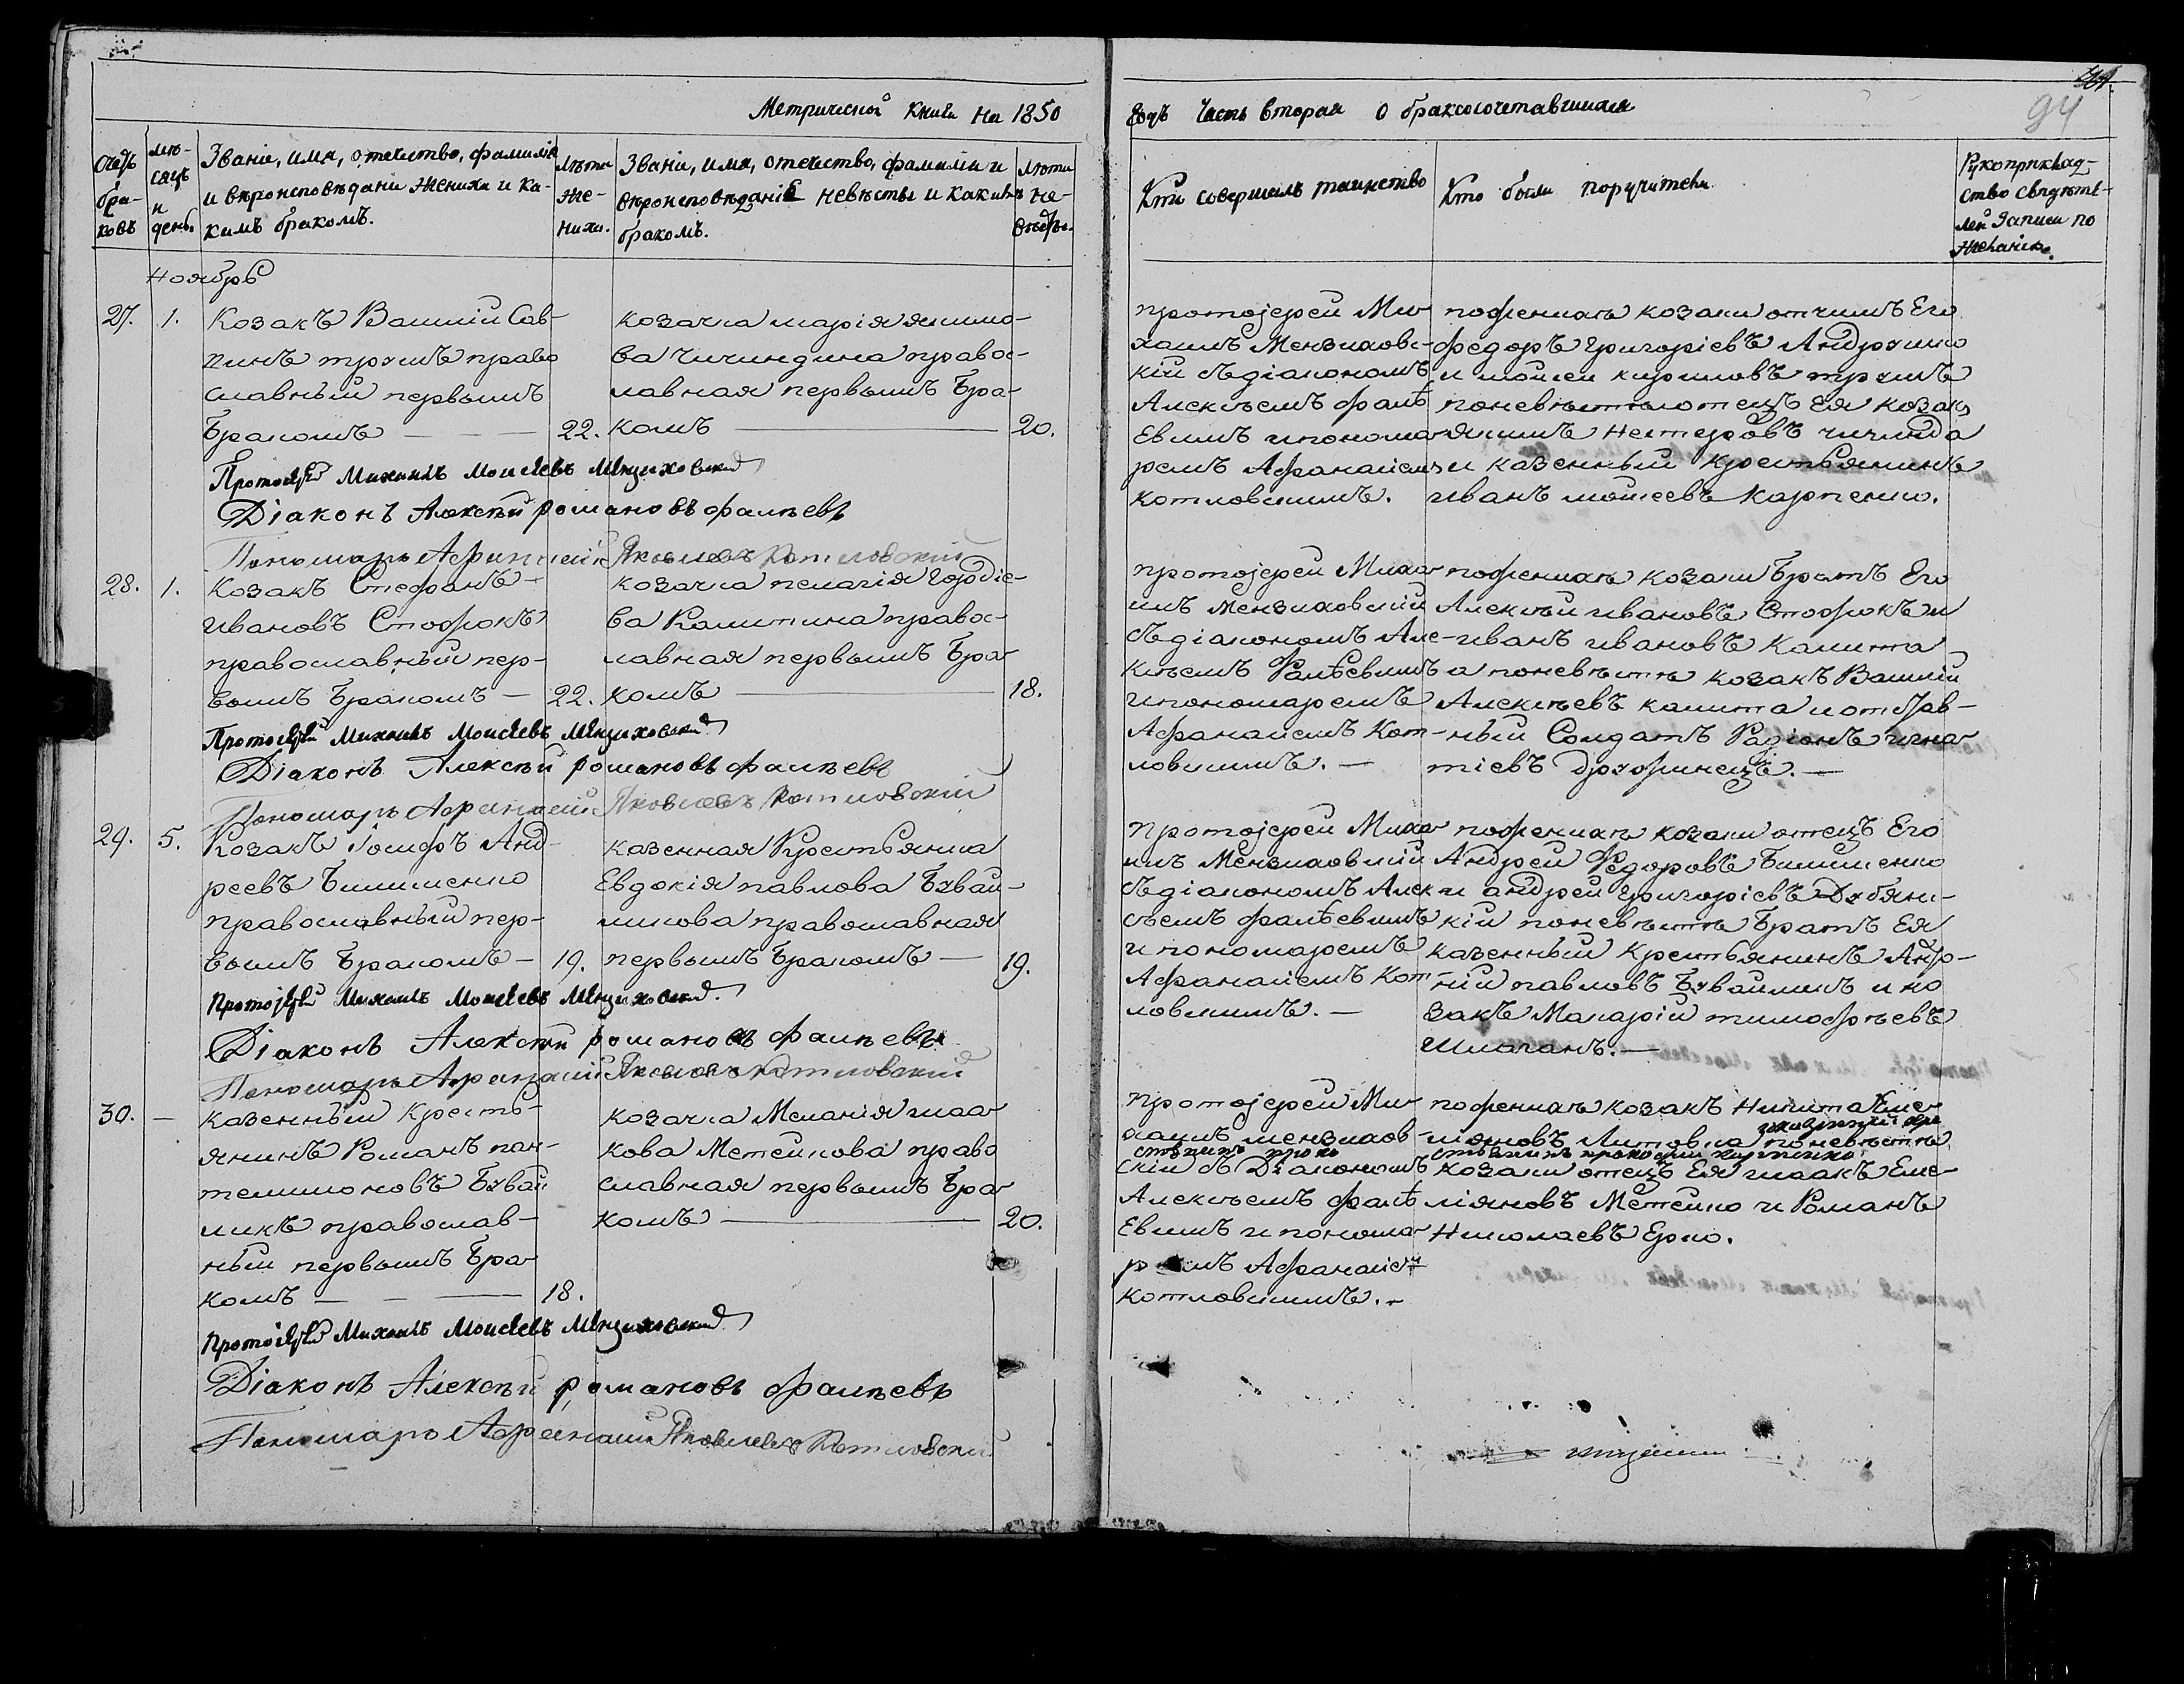 Метрической Книги на 1850
Годъ Часть вторая О бракосочетавшихся
94
Счетъ браковъ
Мѣсяцъ и день
Званіе, имя, отечество, фамилія
и вѣроисповѣданіе жениха и ка-
кимъ бракомъ.
Лѣта
же-
ниха.
Званіе, имя, отечество, фамилія и
вѣроисповѣданіе невѣсты и какимъ
бракомъ.
Лѣта
не-
вѣсты.
Кто совершалъ таинство
Кто были поручители
Рукоприклад-
ство свидѣте-
лей записи по
желанію.
Ноябрь
27. 1.
Козакъ Василій Сав-
правo
славный первымъ
Бракомъ — 22.
козачка марія якимо-
ва Чичиндина правос-
лавная первымъ Бра-
комъ — 20.
протоіерей Ми-
хаилъ Мензиховс-
кій съ діакономъ
Алексѣемъ фалѣ
Евымъ и понома
ремъ Афанасіемъ
котловскимъ.
поженихѣ козаки отчимъ Его
федоръ григоріевъ Андрущко
и мойсей кириловъ
поневѣстѣ отецъ Ея козакъ
якимъ Нестеровъ чичинда
и казенный крестьянинъ
иванъ мойсеевъ карпенко.
Протоіерей Михаилъ Моисеевъ Мензиховский
Діаконъ Алексѣй романовъ фалѣевъ
Пономарь Афанасій Яковлевъ Котловскій
28. 1.
Козакъ Стефанъ
Ивановъ Стофокъ
православный пер-
вымъ Бракомъ — 22.
козачка пелагія Гордіе-
ва Калитина правос-
лавная первымъ Бра
комъ — 18.
протоіерей Миха
илъ мензиховскій
съ діакономъ Але-
ксѣемъ Фалѣевымъ
и пономаремъ
Афанасіемъ Кот-
ловскимъ. —
поженихѣ козаки Братъ Его
Алексѣй ивановъ Стофокъ и
иванъ ивановъ Калита
а поневѣстѣ козакъ Василій
Алексѣевъ калита и отстав-
ный Солдатъ Радіонъ игна
тіевъ —
Протоіерей Михаилъ Моисеевъ Мензиховский
Діаконъ Алексѣй романовъ фалѣевъ
Пономарь Афанасій Яковлевъ Котловскій
29. 5.
Козакъ Іосифъ Анд-
реевъ
православный пер-
вымъ Бракомъ — 19.
казенная Крестьянка
Евдокія павлова Бувай-
ликова православная
первымъ Бракомъ — 19.
протоіерей Миха
илъ Мензиховскій
съ діакономъ Алек
сѣемъ фалѣевымъ
и пономаремъ
Афанасіемъ Кот
ловскимъ. —
поженихѣ козаки отецъ Его
Андрей Федоровъ
и андрей григоріевъ Дубянс-
кій поневѣстѣ Братъ Ея
казенный Крестьянинъ Анд-
рій павловъ Бувайликъ и ко
закъ Макарій тимофѣевъ
Шмаганъ. —
Протоіерей Михаилъ Моисеевъ Мензиховский.
Діаконъ Алексѣй романовъ фалѣевъ
Пономарь Афанасій Яковлевъ Котловскій
30. —
казенный Кресть-
янинъ Романъ пан-
телимоновъ Бувай
ликъ православ-
ный первымъ Бра
комъ — 18.
козачка Меланія исаа
кова Метейкова право
славная первымъ Бра
комъ — 20.
протоіерей Ми-
хаилъ мензихов-
скій съ Діакономъ
Алексѣемъ фалѣ
Евымъ и понома
ремъ Афанасіемъ
котловскимъ. —
поженихѣ козакъ Никита Еме
ляновъ Литовка поневѣстѣ
козаки отецъ Ея исаакъ Еме-
ліяновъ Метейко и Романъ
Николаевъ Ерко.
Протоіерей Михаилъ Моисеевъ Мензиховский
Діаконъ Алексѣй романовъ фалѣевъ
Пономарь Афанасій Яковлевъ Котловскій